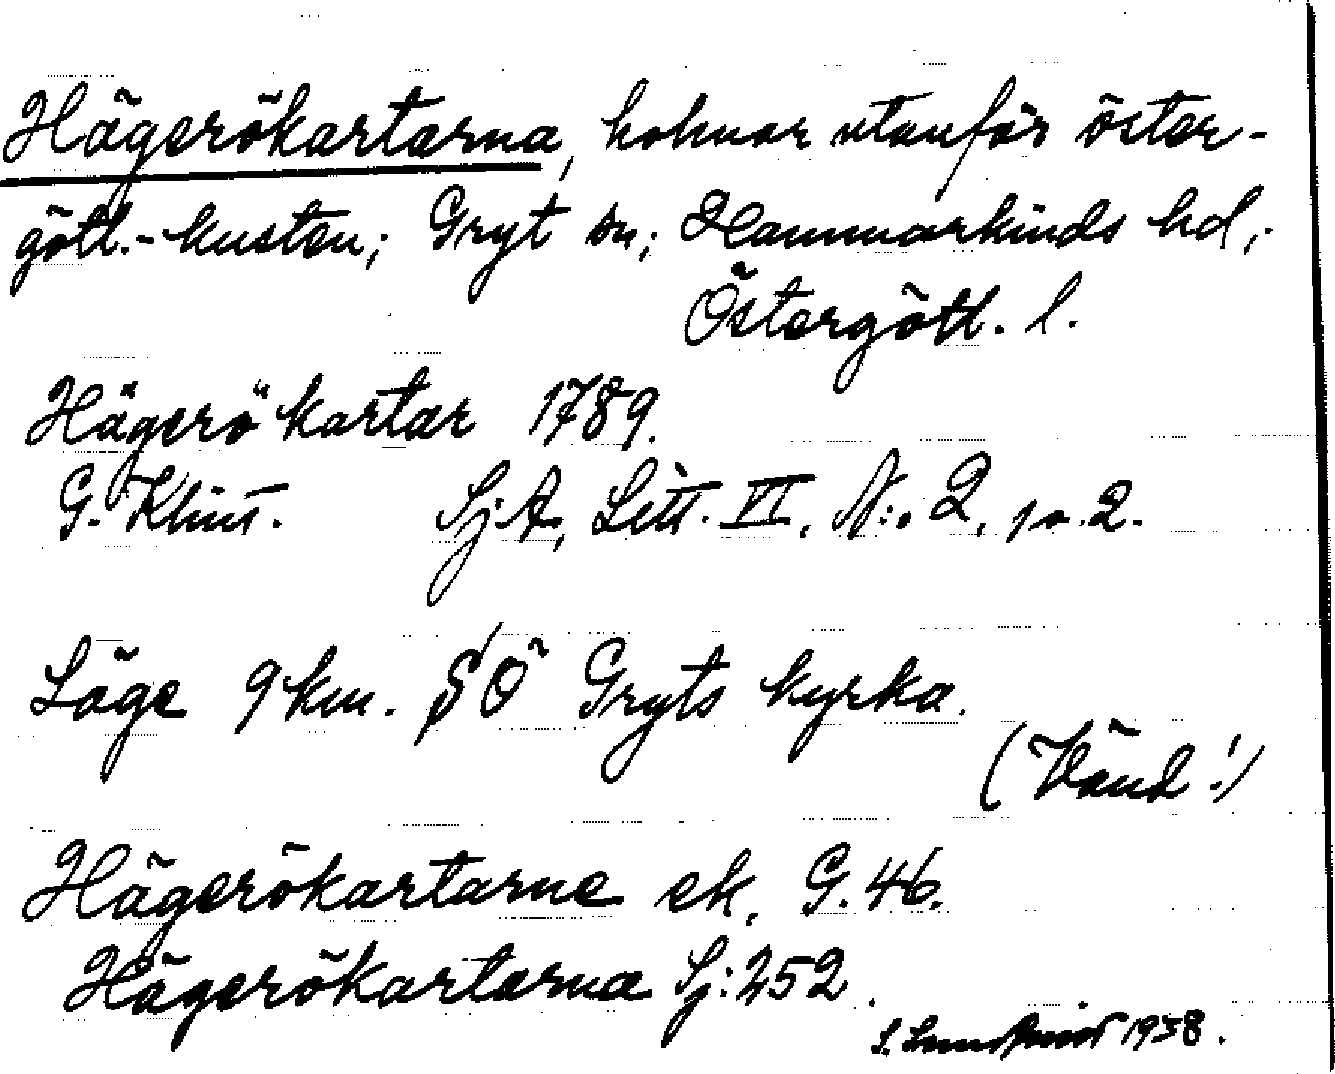 Hägerökartarna, holmar utanför öster-
götl.-kusten; Gryt sn; Hammarkinds hd;
Östergötl. l.
Hägerö kartar 1789.
G. Klint. Sj.A, Litt. VI, N:o 2, p. 2.
Läge 9 km. SÖ Gryts kyrka.
(Vänd!)
Hägerökartarne ek. G. 46.
Hägerökartarna Sj: 252.
1938.